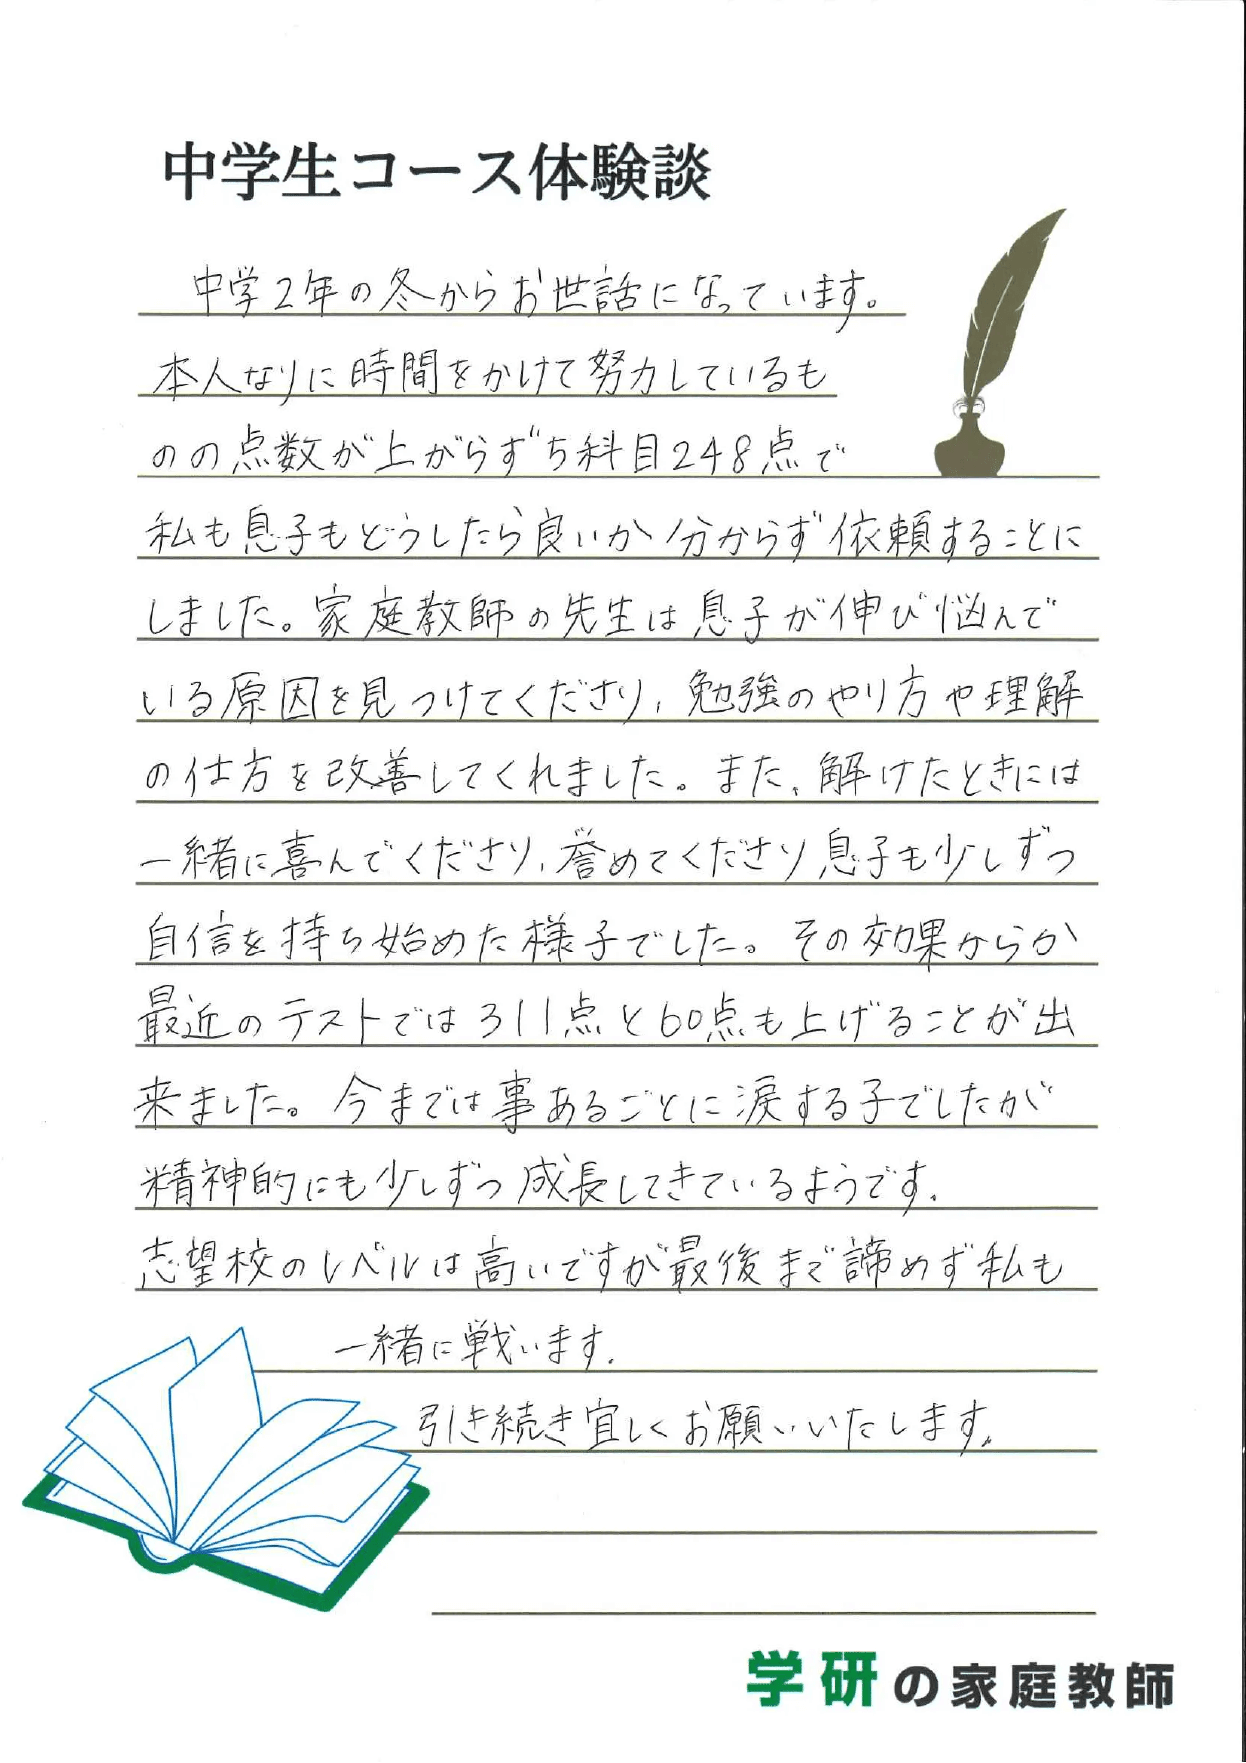 中学生コース体験談
中学2年の冬からお世話になっています。
本人なりに時間をかけて努力しているも
のの点数が上がらず5科目248点で
私も息子もどうしたら良いか分からず依頼することに
しました。家庭教師の先生は息子が伸び悩んで
いる原因を見つけてくださり、勉強のやり方や理解
の仕方を改善してくれました。また、解けたときには
一緒に喜んでくださり、誉めてくださり息子も少しずつ
自信を持ち始めた様子でした。その効果からか
最近のテストでは311点と60点も上げることが出
来ました。今までは事あるごとに涙する子でしたが
精神的にも少しずつ成長してきているようです。
志望校のレベルは高いですが最後まで諦めず私も
一緒に戦います。
引き続き宜しくお願いいたします。
学研の家庭教師